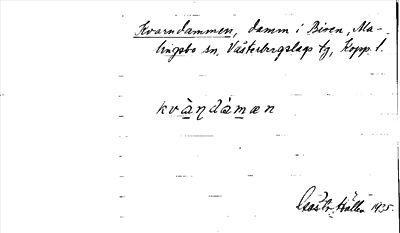 Kvarndammen, damm i Biren, Ma-
lingsbo sn, Västerbergslags tg, Kopp. l.
kvàηdàmæn
1935.